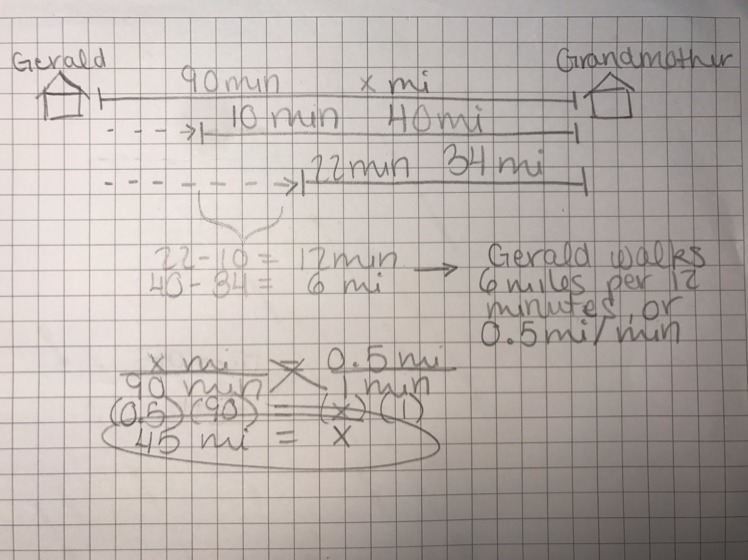 Gerald
Grandmother
90min x mi
10 min 40mi
22min 34 mi
22-10= 12min
40-34= 6 mi
→ Gerald walks
6 miles per 12
minutes, or
0.5mi/min
x mi = 0.5 mi
90 min 1 min
(0.5) (90) = (x) (1)
45 mi = x